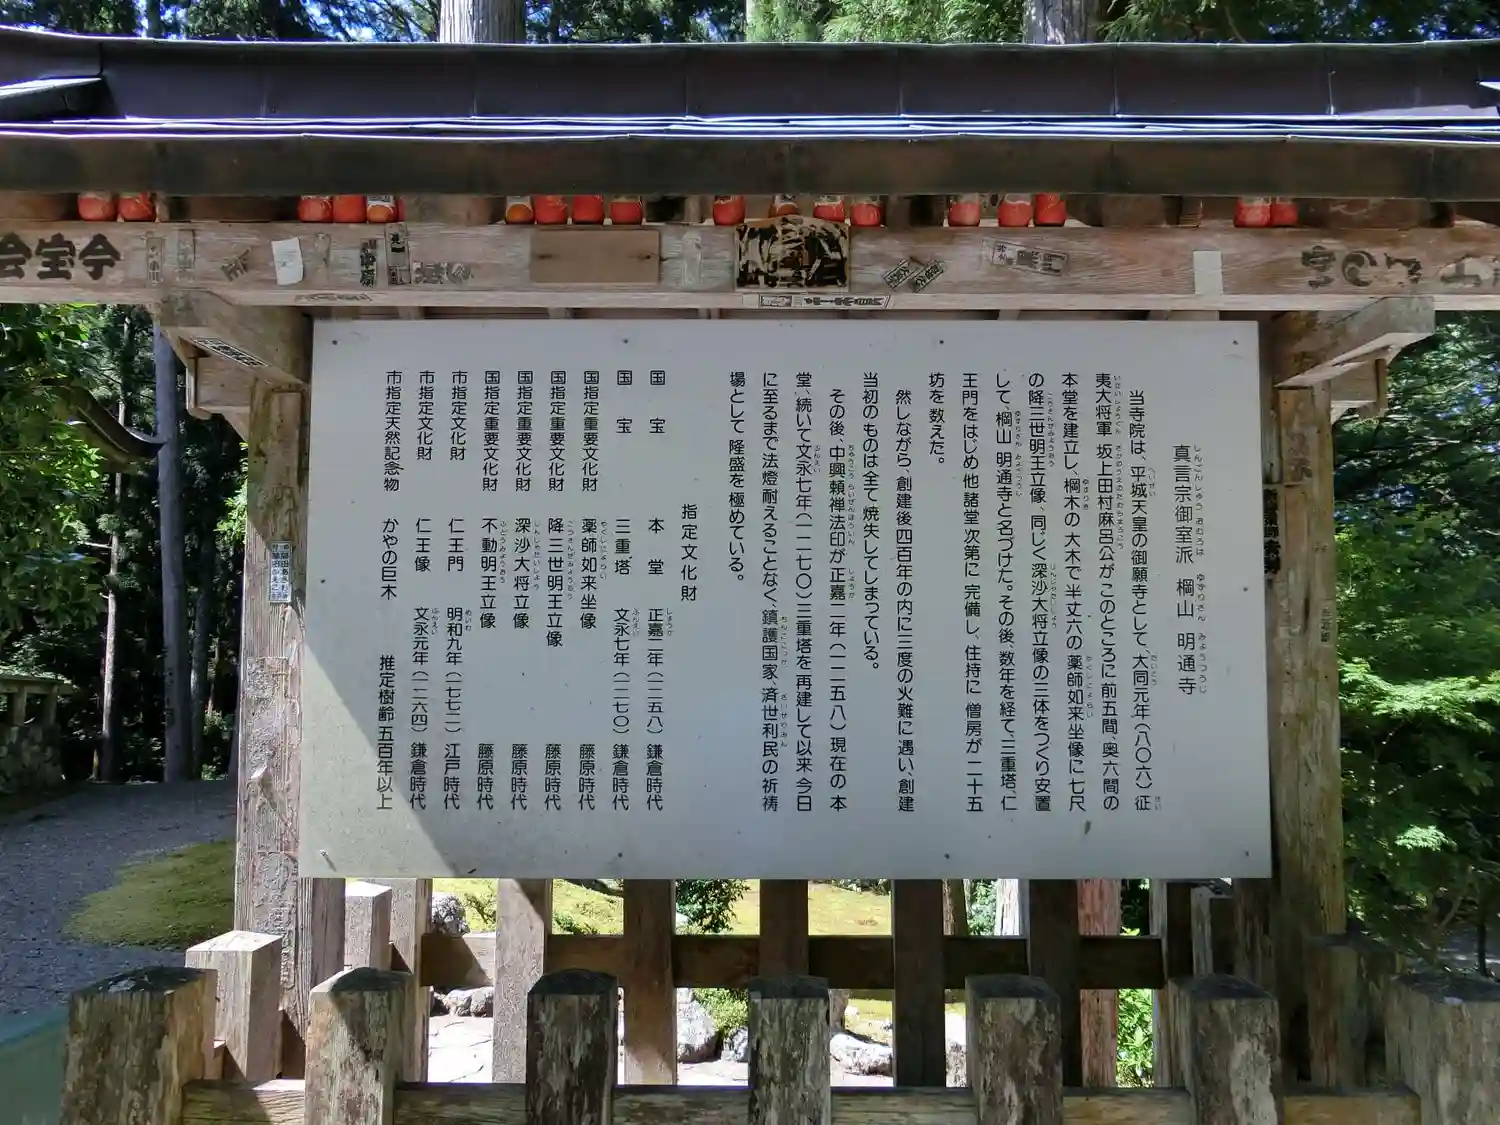 真言宗御室派 棡山 明通寺
当寺院は、平城天皇の御願寺として、大同元年(八〇六)征
夷大将軍 坂上田村麻呂公がこのところに前五間、奥六間の
本堂を建立し、棡木の大木で半丈六の薬師如来坐像に七尺
の降三世明王立像、同じく深沙大将立像の三体をつくり安置
して、棡山 明通寺と名づけた。その後、数年を経て、三重塔、仁
王門をはじめ他諸堂次第に完備し、住持に僧房が二十五
坊を数えた。
然しながら、創建後四百年の内に三度の火難に遇い、創建
当初のものは全て焼失してしまっている。
その後、中興頼禅法印が正嘉二年(一二五八)現在の本
堂、続いて文永七年(一二七〇)三重塔を再建して以来今日
に至るまで法燈耐えることなく、鎮護国家、済世利民の祈祷
場として隆盛を極めている。
指定文化財
国宝 本堂 正嘉二年(一二五八)鎌倉時代
国宝 三重塔 文永七年(一二七〇)鎌倉時代
国指定重要文化財 薬師如来坐像 藤原時代
国指定重要文化財 降三世明王立像 藤原時代
国指定重要文化財 深沙大将立像 藤原時代
国指定重要文化財 不動明王立像 藤原時代
市指定文化財 仁王門 明和九年(一七七二)江戸時代
市指定文化財 仁王像 文永元年(一二六四)鎌倉時代
市指定天然記念物 かやの巨木 推定樹齢五百年以上
今宝会